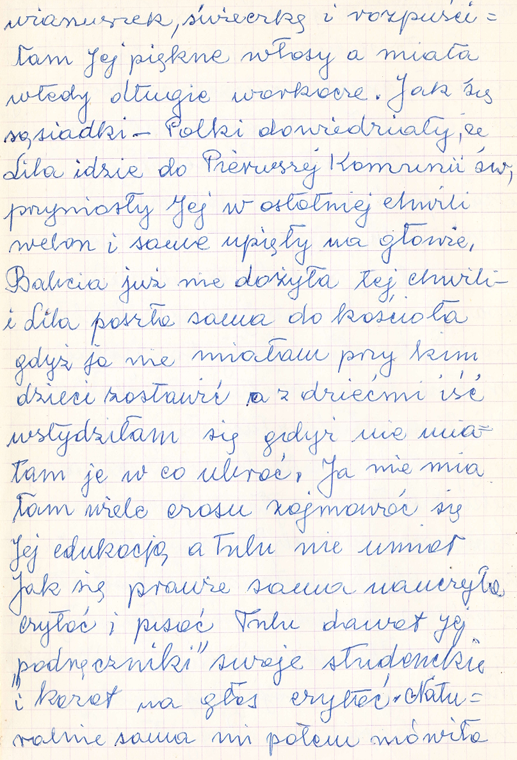 wianuszek, świeczkę i rozpuści=
łam Jej piękne włosy a miała
wtedy długie warkocze. Jak się
sąsiadki – Polki dowiedziały, że
Lila idzie do Pierwszej Komunii św,
przyniosły Jej w ostatniej chwili
welon i same upięły na głowie,
Babcia już nie dożyła tej chwili –
i Lila poszła sama do kościoła
gdyż ja nie miałam przy kim
dzieci zostawić a z dziećmi iść
wstydziłam się gdyż nie mia=
łam je w co ubrać. Ja nie mia
łam wiele czasu zajmować się
Jej edukacją, a Tulu nie umiał
Jak się prawie sama nauczyła
czytać i pisać Tulu dawał Jej
"podręczniki" swoje studenckie
i kazał na głos czytać. Natu=
ralnie sama mi potem mówiła